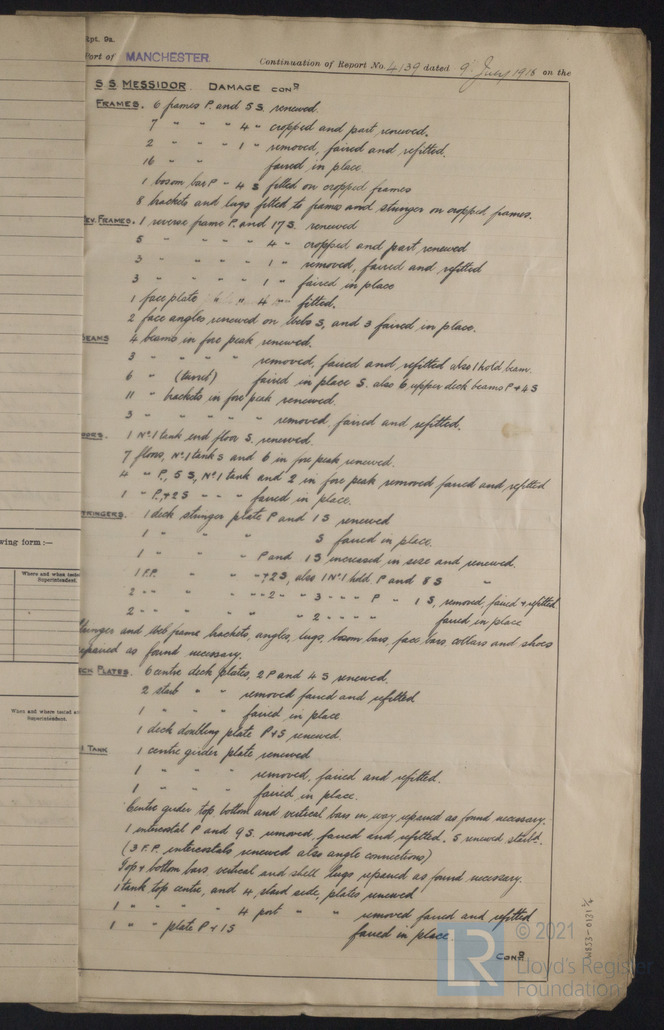 Rpt. 9a.
Port of MANCHESTER Continuation of Report No. 4139 dated 9. July 1918 on the
S S MESSIDOR. DAMAGE COND
FRAMES. 6 frames P. and 5 S. renewed.
7 " " " 4 " cropped and part renewed.
2 " " " 1 " removed, faired and refitted.
16 " " faired in place
1 bosom bar P " 4 S fitted on cropped frames
8 brackets and lugs fitted to frame and stringer on cropped frames.
REV. FRAMES. 1 reverse frame P. and 17 S. renewed
5 " " " " 4 " cropped and part renewed
3 " " " " 1 " removed, faired and refitted
3 " " " " 1 " faired in place
1 face plate " " 4 " fitted.
2 face angles renewed on Webs S, and 3 faired in place.
BEAMS 4 beams in fore peak renewed.
3 " " " " removed, faired and refitted also 1 hold beam.
6 " (turret) faired in place S. also 6 upper deck beams P + 4 S
11 " brackets in fore peak renewed
3 " " " " " removed, faired and refitted.
OORS. 1 No. 1 tank end floor S. renewed.
7 floors, No. 1 tank S and 6 in fore peak renewed.
4 " P, 5 S, No. 1 tank and 2 in fore peak removed faired and refitted
1 " P, + 2 S " " " faired in place.
STRINGERS. 1 deck stringer plate P and 1 S renewed
1 " " " S faired in place.
1 " " " P and 1 S increased in size and renewed.
1 F.P. " " " + 2 S, also 1 No. 1 hold P and 8 S "
2 " " " " " 2 " " 3 " " " P " 1 S, removed, faired + refitted
2 " " " " 2 " " " " faired in place
Stringer and Web frame brackets, angles, lugs, bosom bars, face bars, collars and shoes
repaired as found necessary.
DECK PLATES. 6 centre deck plates, 2 P and 4 S renewed.
2 starb " " removed faired and refitted
1 " " " faired in place
1 deck doubling plate P + S renewed.
1 TANK 1 centre girder plate renewed
1 " " " removed, faired and refitted.
1 " " " faired in place.
Centre girder top bottom and vertical bars in way repaired as found necessary.
1 intercostal P and 9 S. removed, faired and refitted. 5 renewed starbd.
(3 F.P. intercostals renewed also angle connections)
Top + bottom bars vertical and shell lugs repaired as found necessary.
1 tank top centre, and 4 starb side, plates renewed
1 " " " " 4 port " " removed faired and refitted
1 " " plate P + 1 S faired in place.
COND
wing form :—
Where and when tested
Superintendent.
Where and when tested
Superintendent.
© 2021
LR
Lloyd's Register
Foundation